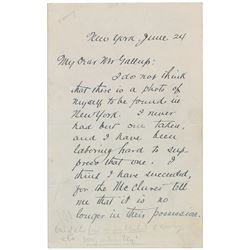 New York, June 24
My Dear Mr Gallup:
I do not think
that there is a photo of
myself to be found in
New York. I never
had but one taken,
and I have been
laboring hard to sup-
press that one. I
think I have succeeded,
for the McClures tell
me that it is no
longer in their possession.